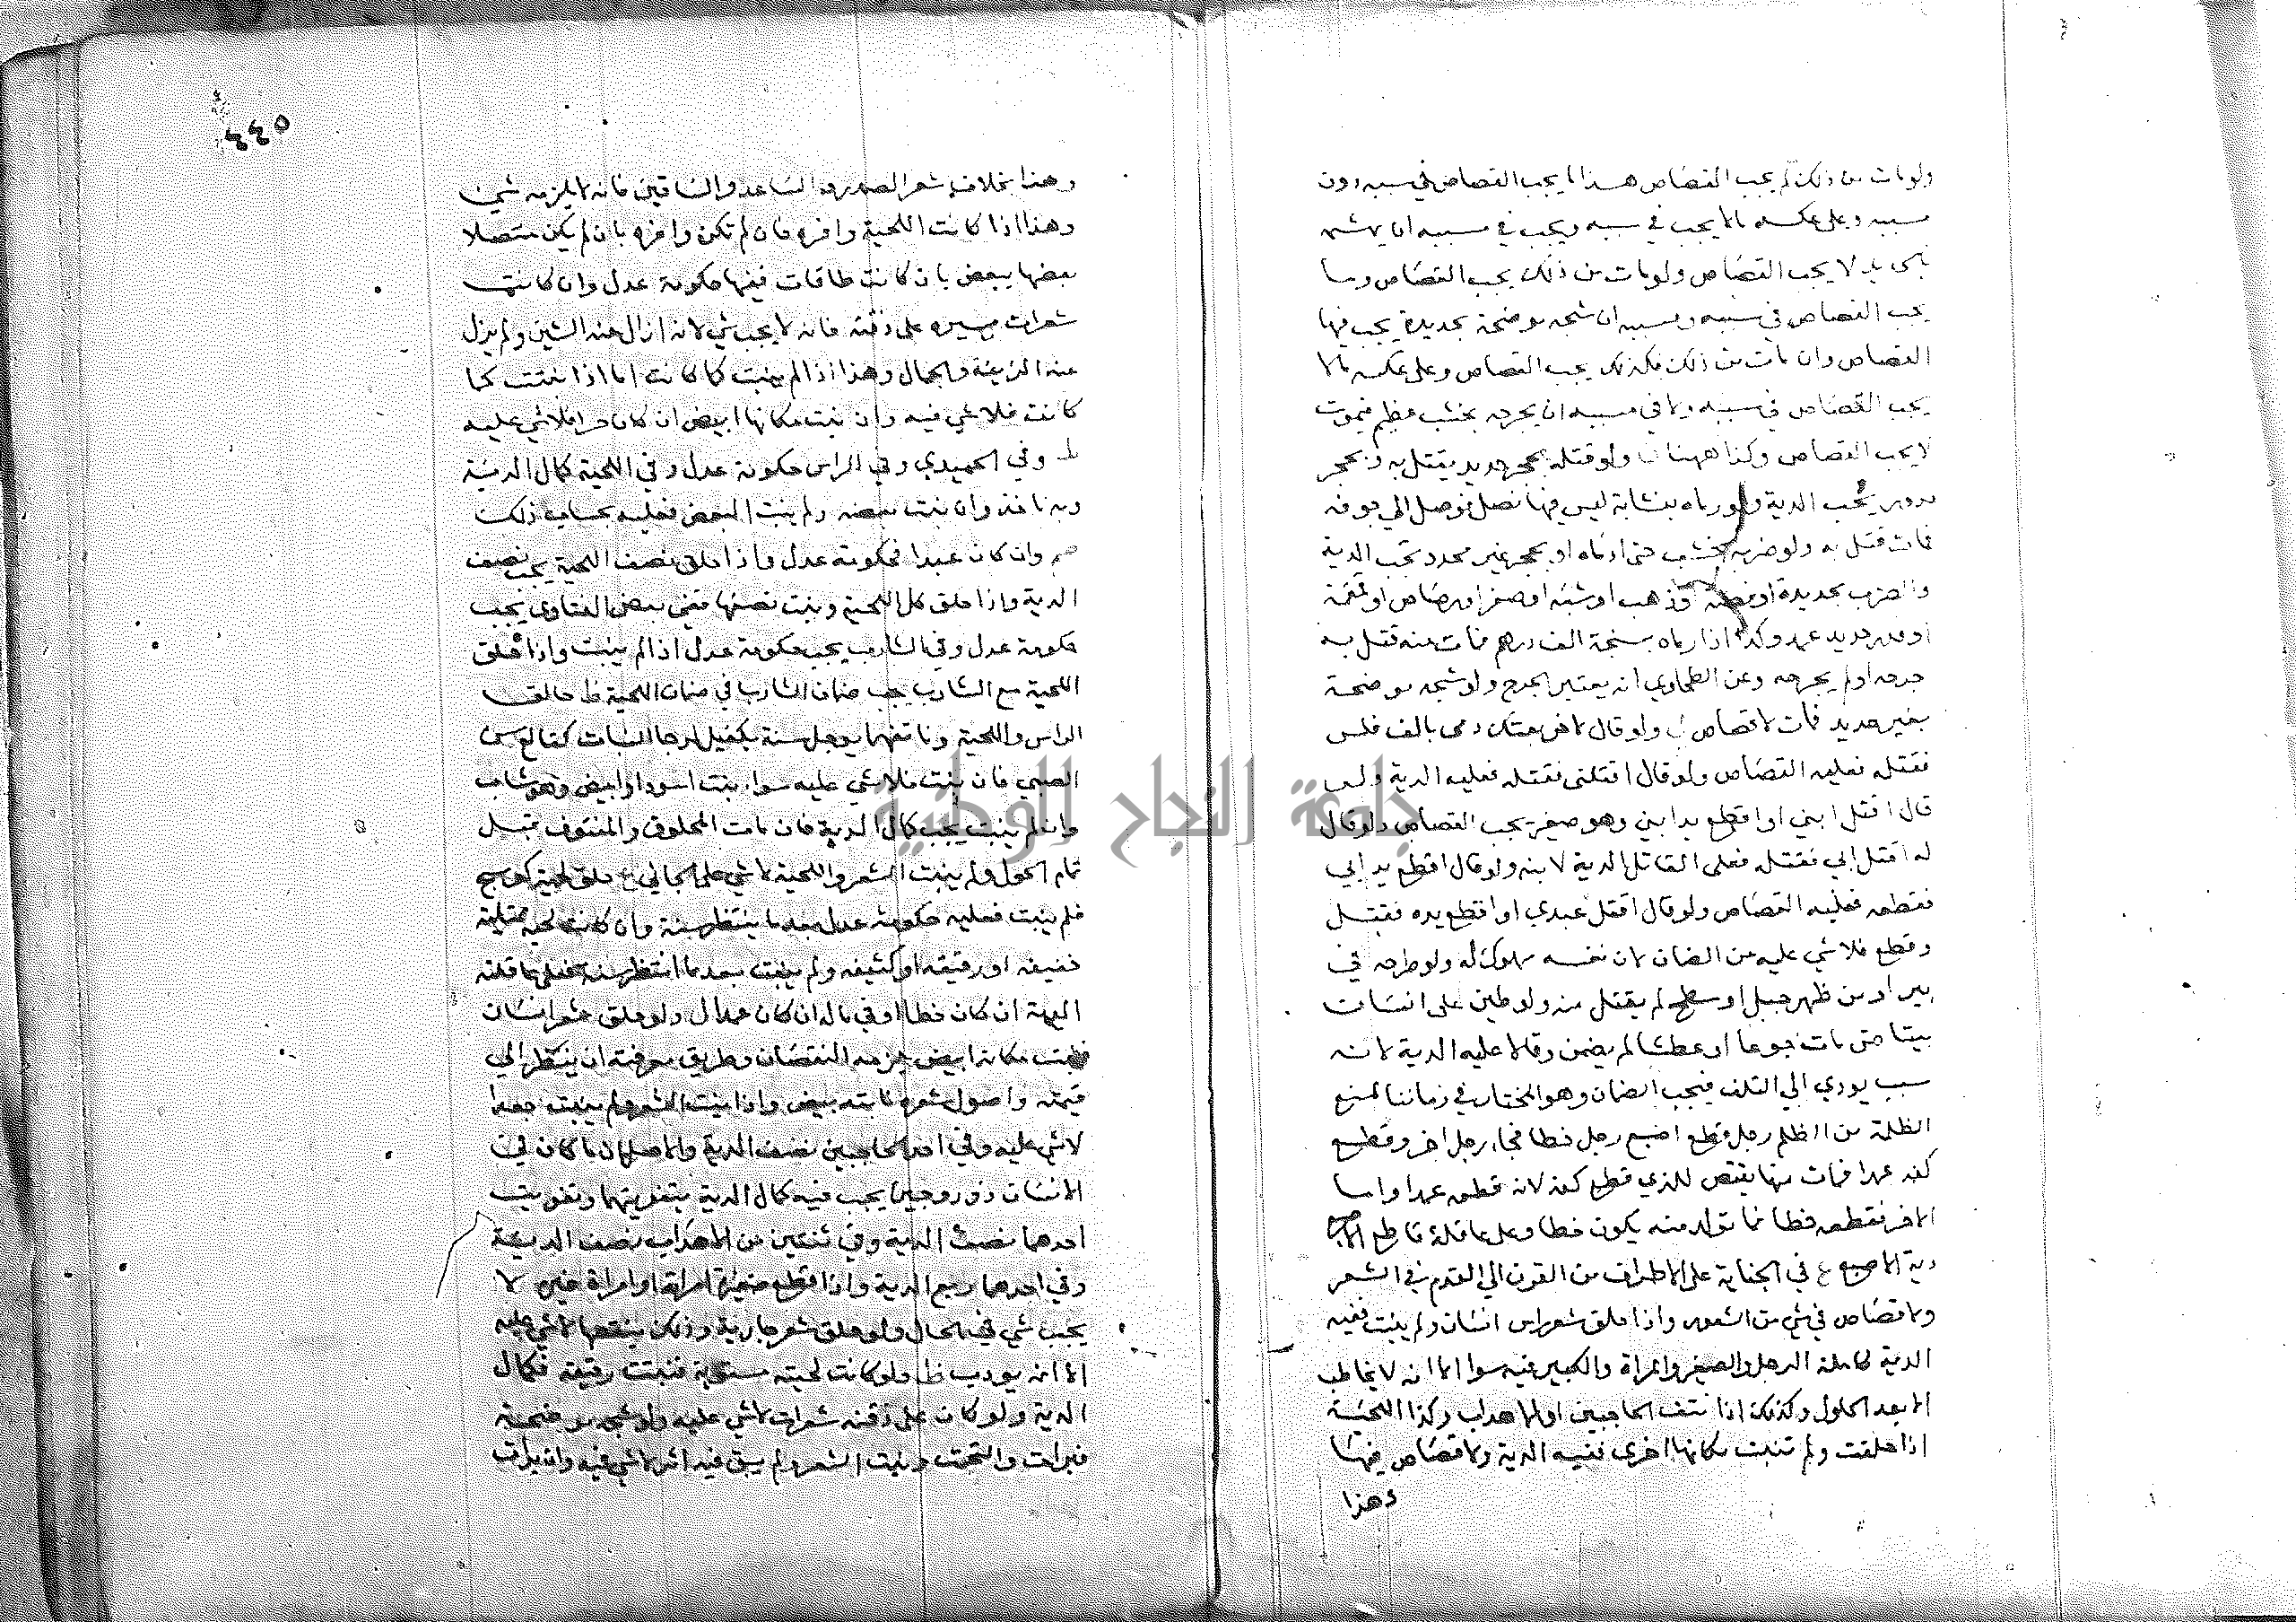 ولومات من ذلك لم يجب القصاص هذا ما يجب القصاص في سببه دون
مسببه وعلى عكسه مالا يجب في سببه ويجب في مسببه ان يهشم
يد لا يجب القصاص ولومات من ذلك يجب القصاص وما
يجب القصاص في سببه ومسببه ان شجه موضحة بحديدة يجب فيها
القصاص وان مات من ذلك فكذلك يجب القصاص وعلى عكسه مالا
يجب القصاص في سببه ولا في مسببه ان يجرحه بخشب عظيم فيموت
لا يجب القصاص وكذا ههنا ولو قتله بحجر حديد يقتل به وبحجر
مدور يجب الدية ولو رماه بنشابة ليس فيها نصل فوصل الى جوفه
فمات قتل به ولو ضربه بخشب حتى ادماه او بحجر غير محدد تجب الدية
والضرب بحديدة او فضة وذهب او شبه او صفر او رصاص او قمقمة
او حديد عمد وكذا اذا رماه بسنجة الف درهم فمات منه قتل به
جرحه اولم يجرحه وعن الطحاوي انه يعتبر الجرح ولو شجه موضحة
بغير حديد فمات لا قصاص ولو قال لاخر بعتك دمى بالف فلس
فقتله فعليه القصاص ولو قال اقتلنى فقتله فعليه الدية ولو
قال اقتل ابني او اقطع يد ابني وهو صغير يجب القصاص ولو قال
له اقتل ابي فقتله فعلى القاتل الدية لابنه ولو قال اقطع يد ابي
فقطعه فعليه القصاص ولو قال اقتل عبدي او اقطع يده فقتل
وقطع فلا شي عليه من الضمان لان نفسه مملوك له ولو طرحه في
بير او من ظهر جبل او سطح لم يقتل منه ولو طين على انسان
بيتا حتى مات جوعا او عطشا لم يضمن وقالا عليه الدية لانه
سبب يودي الى التلف فيجب الضمان وهو المختار في زماننا لمنع
الظلمة من الظلم رجل قطع اصبع رجل خطا فجاء رجل اخر وقطع
كفه عمدا فمات منها يقتص للذي قطع كفه لانه قطعه عمدا واما
الاخر فقطعه خطا فما تولد منه يكون خطا وعلى عاقلة قاطع الاصبع
دية الاصبع ع في الجناية على الاطراف من القرن الى القدم في الشعر
ولا قصاص في شي من الشعور واذا حلق شعر راس انسان ولم ينبت ففيه
الدية كاملة الرجل والصغير والمراة والكبير فيه سوا الا انه لا يخاطب
الا بعد الحلول وكذلك اذا نتف الحاجبين او الاهداب وكذا اللحية
اذا حلقت ولم تنبت مكانها اخرى ففيه الدية ولا قصاص فيها
وهذا
٤٤٥
وهذا بخلاف شعر الصدر والساعد والساقين فانه لا يلزمه شي
وهذا اذا كانت اللحية وافرة فان لم تكن وافرة بان لم يكن متصلا
بعضها ببعض بان كانت طاقات ففيها حكومة عدل وان كانت
شعرات يسيرة على ذقنه فانه لا يجب شي لانه ازال عنه الشين ولم يزل
عنه الزينة والجمال وهذا اذا لم ينبت كما كانت اما اذا نبتت كما
كانت فلا شي فيه وان نبت مكانها ابيض ان كان حرا فلا شي عليه
ط وفي الحميدي وفي الراس حكومة عدل وفي اللحية كمال الدية
وبه ناخذ وان نبت بعضه ولم ينبت البعض فعليه بحساب ذلك
وان كان عبدا فحكومة عدل واذا حلق نصف اللحية يجب نصف
الدية واذا حلق كل اللحية ونبت نصفها ففي بعض الفتاوى يجب
حكومة عدل وفي الشارب يجب حكومة عدل اذا لم ينبت واذا حلق
اللحية مع الشارب يجب ضمان الشارب في ضمان اللحية ظ حالق
الراس واللحية وناتفهما يوجل سنة بكفيل لرجا النبات كقالع سن
الصبي فان نبت فلا شي عليه سواء نبت اسود او ابيض وهو شاب
وان لم ينبت يجب كمال الدية فان مات المحلوق والمنتوف قبل
تمام الحول ولم ينبت الشعر واللحية لا شي على الجاني ع حلق لحية كوسج
فلم ينبت فعليه حكومة عدل بعدما ينتظر سنة وان كانت لحية
خفيفه او رقيقه او كثيفه ولم ينبت بعد ما انتظر سنة فعلى عاقلته
الدية ان كان خطا او في ماله ان كان عمدا ولو حلق شعر انسان
فنبت مكانه ابيض يلزمه النقصان وطريق معرفته ان ينظر الى
قيمته واصول شعره نابته بيض واذا نبت الشعر ولم ينبت جعدا
لا شي عليه وفي احد الحاجبين نصف الدية والاصل ان ما كان في
الانسان ذو زوجين يجب فيه كمال الدية بتفويتهما وتفويت
احدهما نصف الدية وفي ثنتين من الاهداب نصف الدية
وفي احدهما ربع الدية واذا قطع ضفيرة امراته او امراة غيره لا
يجب شي في الحال ولو حلق شعر جارية وذلك ينقصها لا شي عليه
الا انه يودب ظ ولو كانت لحيته مستوية فنبتت رقيقة فكمال
الدية ولو كان على ذقنه شعرات لا شي عليه ولو شجه موضحة
فبرات والتحمت ونبت الشعر ولم يبق فيه اثر لا شي فيه وان برات
جامعة النجاح الوطنية